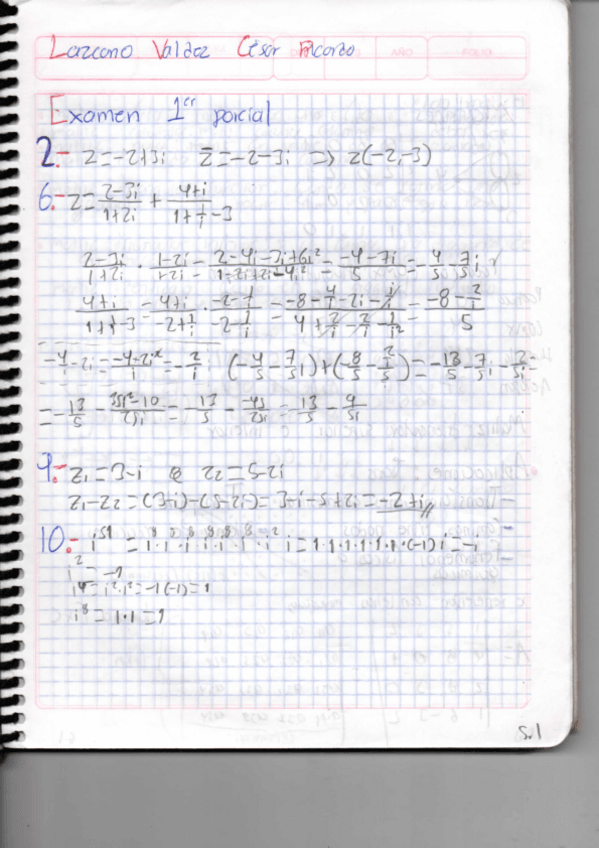 Lazcano Valdez César Ricardo
Examen 1er parcial
2.- z=-2+3i z̄=-2-3i => z(-2,-3)
6.- z= (2-3i)/(1+2i) + (4+i)/(1+1/i-3)
(2-3i)/(1+2i) · (1-2i)/(1-2i) = (2-4i-3i+6i²)/(1-2i+2i-4i²) = (-4-7i)/5 = -4/5 - 7/5 i
(4+i)/(1+1/i-3) = (4+i)/(-2+1/i) · (-2-1/i)/(-2-1/i) = (-8-4/i-2i-i/i)/(4+2/i-2/i-1/i²) = (-8-2/i)/5
-4/i-2i = (-4-2i²)/i = -2/i (-4/5-7/5i)+(-8/5-2/5i) = -13/5-7/5i-2/5i=
9.- z1=3-i z2=5-2i
z1-z2=(3-i)-(5-2i)=3-i-5+2i=-2+i
10.- i⁵¹ = i⁸·i⁸·i⁸·i⁸·i⁸·i⁸·i² i=1·1·1·1·1·1·(-1)i=-i
i²=-1
i⁴=i²·i²=-1(-1)=1
i⁸=1·1=1